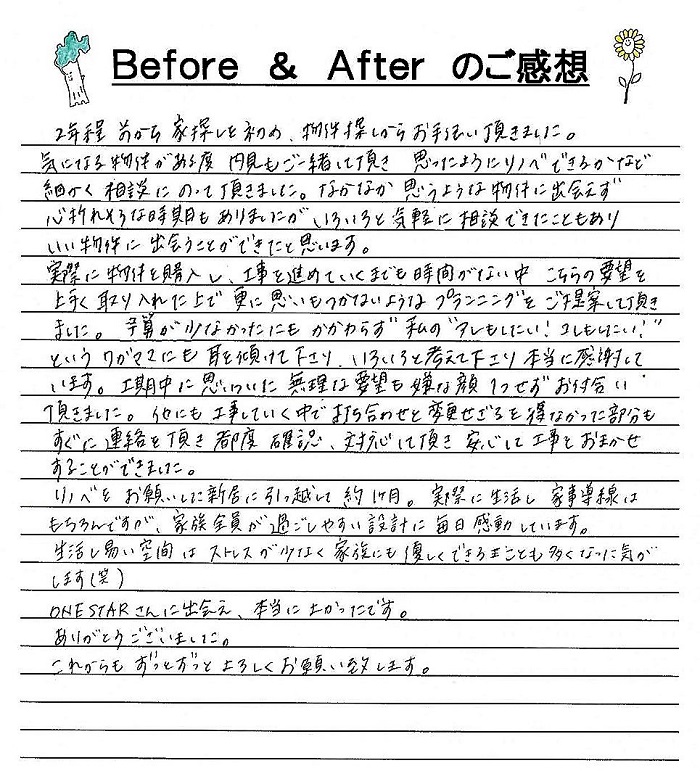 Before & After のご感想
2年程前から家探しを初め、物件探しからお手伝い頂きました。
気になる物件がある度 内見もご一緒して頂き 思ったようにリノベできるかなど
細かく相談にのって頂きました。なかなか思うような物件に出会えず
心折れそうな時期もありましたがいろいろと気軽に相談できたこともあり
いい物件に出会うことができたと思います。
実際に物件を購入し、工事を進めていくまでも時間がない中 こちらの要望を
上手く取り入れた上で更に思いもつかないようなプランニングをご提案して頂き
ました。予算が少なかったにもかかわらず私の"アレもしたい!コレもしたい!"
というワガママにも耳を傾けて下さり、いろいろと考えて下さり本当に感謝して
います。工期中に思いついた無理な要望も嫌な顔1つせずお付合い
頂きました。他にも工事していく中で打ち合わせと変更せざるを得なかった部分も
すぐに連絡を頂き都度確認、対応して頂き安心して工事をおまかせ
することができました。
リノベをお願いした新居に引っ越して約1ヶ月。実際に生活し家事導線は
もちろんですが、家族全員が過ごしやすい設計に毎日感動しています。
生活し易い空間はストレスが少なく家族にも優しくできることも多くなった気が
します(笑)
ONE STARさんに出会え、本当によかったです。
ありがとうございました。
これからもずっとずっとよろしくお願い致します。